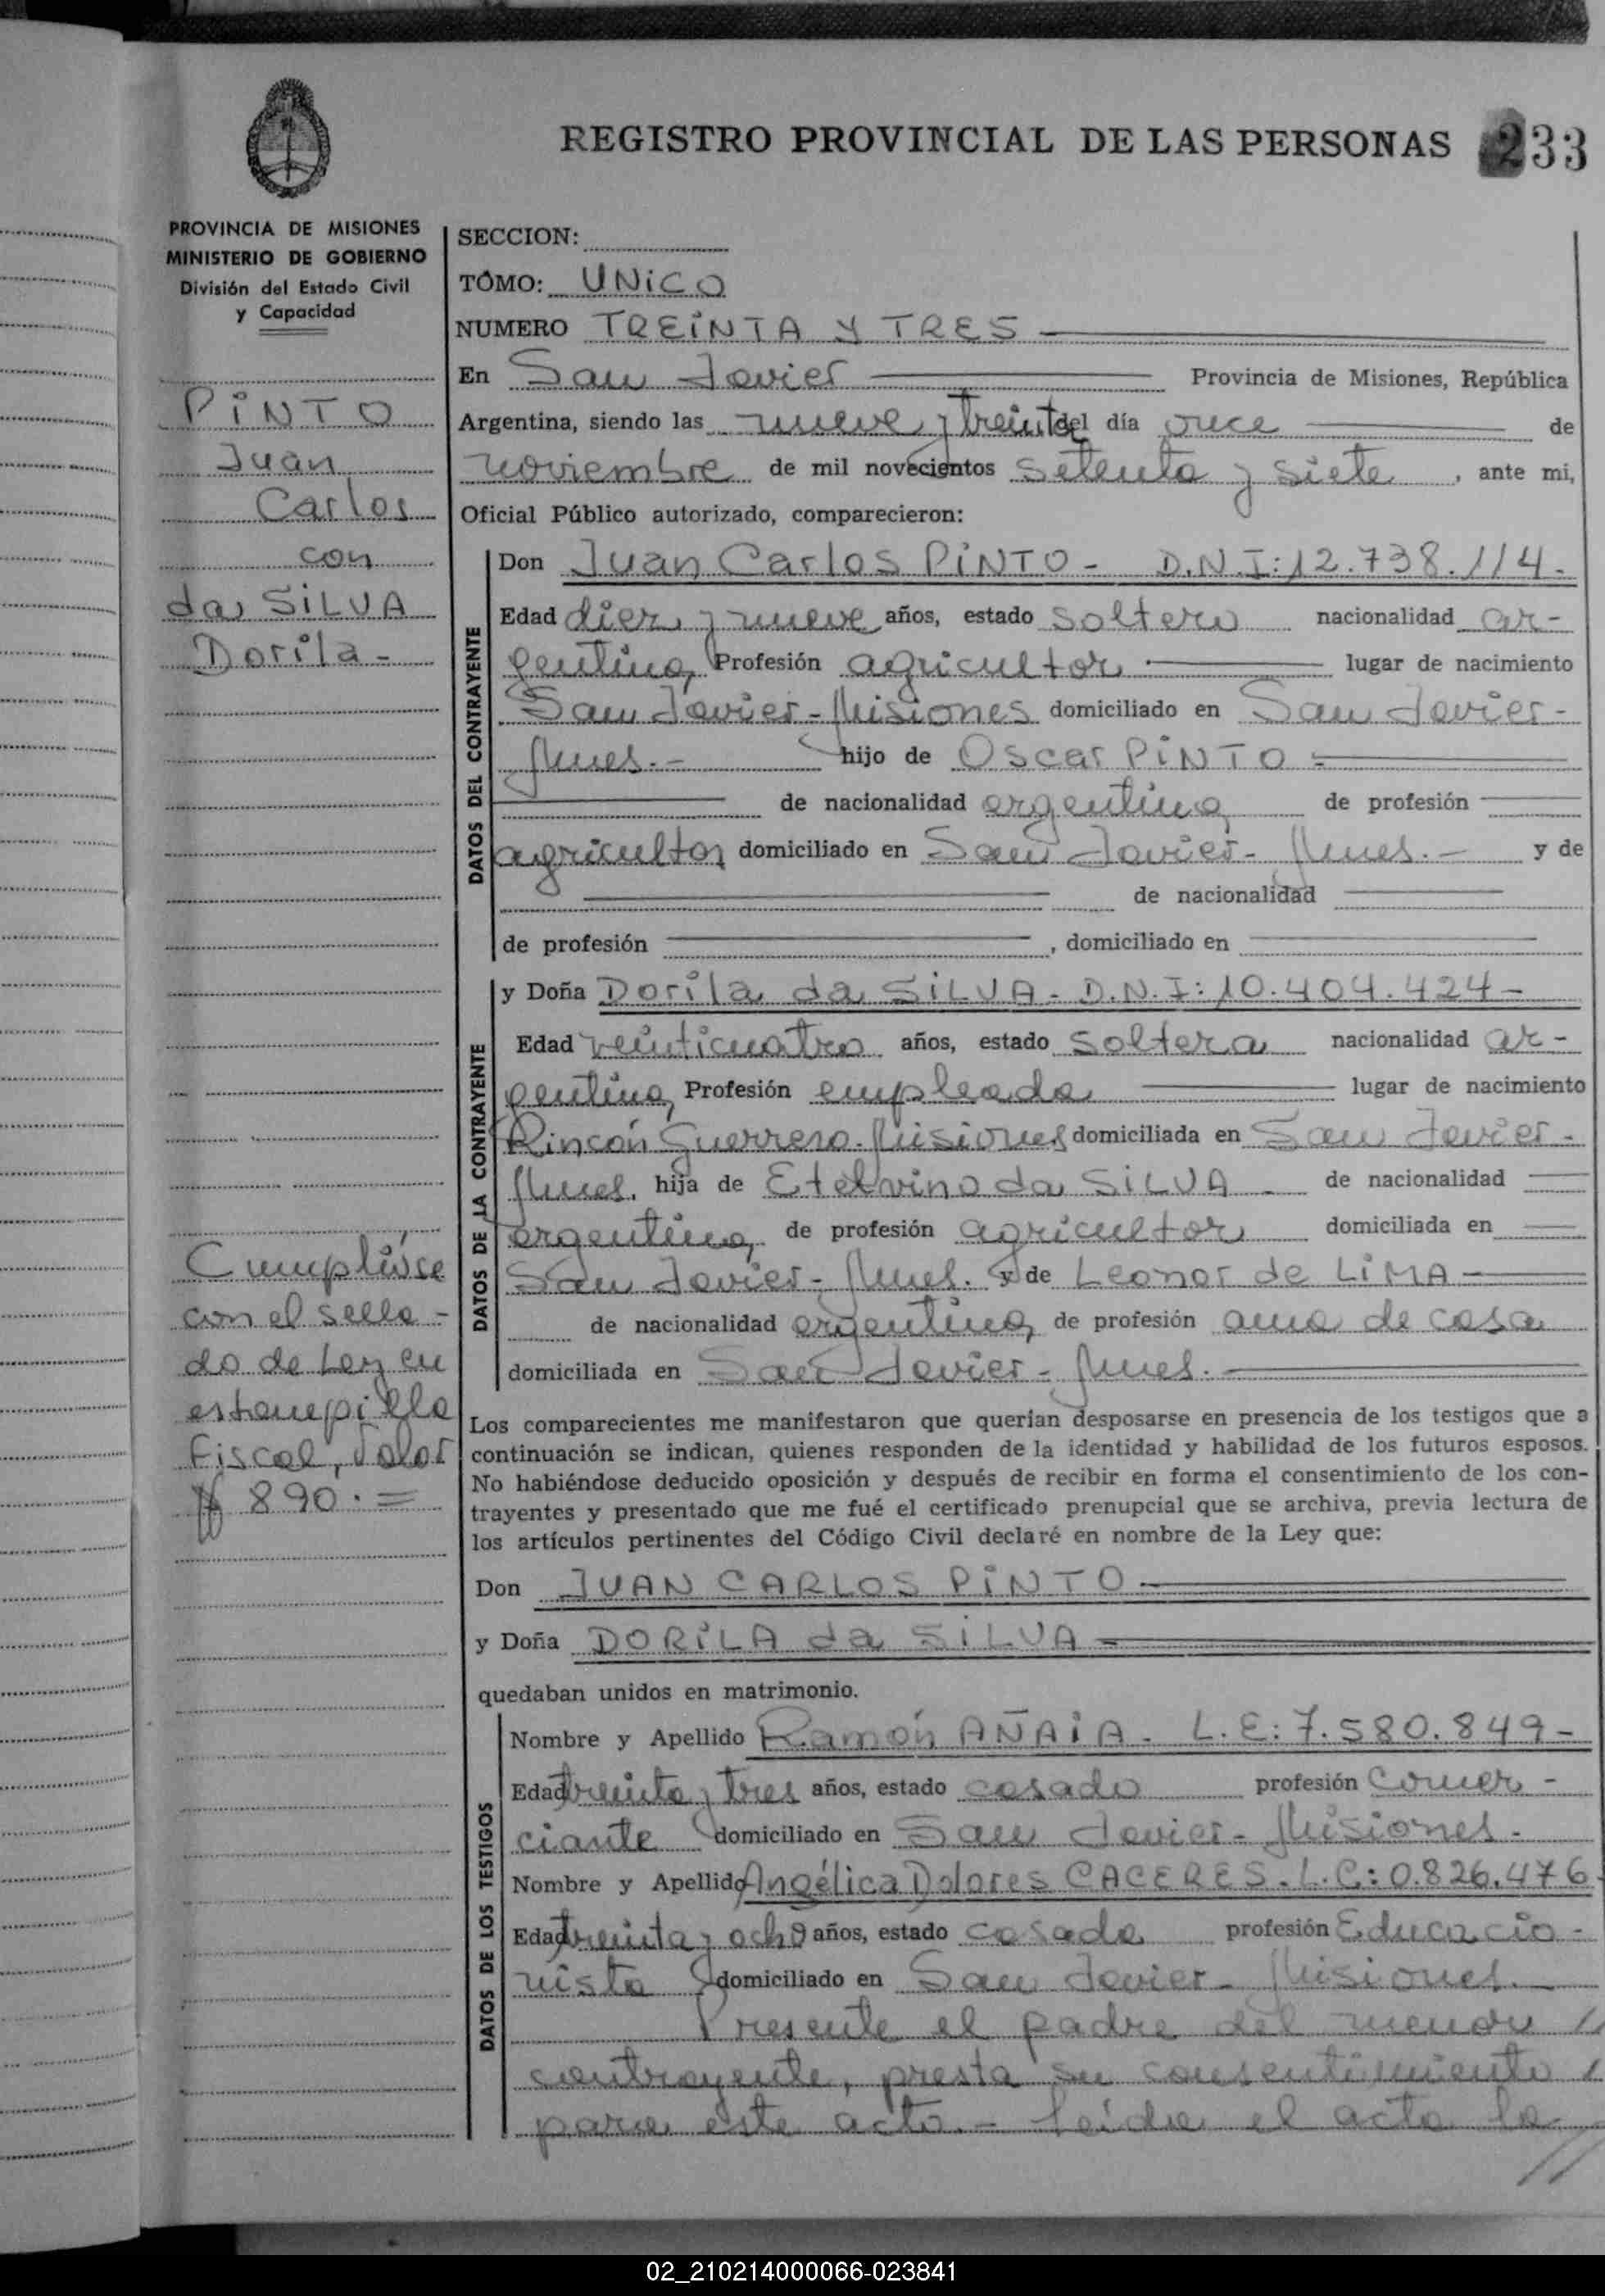 REGISTRO PROVINCIAL DE LAS PERSONAS 233
PROVINCIA DE MISIONES
MINISTERIO DE GOBIERNO
División del Estado Civil
y Capacidad
PINTO
Juan
Carlos
con
da SILVA
Dorila -
Cumplióse
con el sella-
do de Ley en
estampilla
Fiscal, valor
$ 890.=
SECCION:
TOMO: UNICO
NUMERO TREINTA Y TRES
En San Javier Provincia de Misiones, República
Argentina, siendo las nueve y treinta del día once de
noviembre de mil novecientos setenta y siete, ante mi,
Oficial Público autorizado, comparecieron:
DATOS DEL CONTRAYENTE
Don Juan Carlos PINTO - D.N.I: 12.738.114.-
Edad diez y nueve años, estado soltero nacionalidad ar-
gentina, Profesión agricultor lugar de nacimiento
San Javier - Misiones domiciliado en San Javier -
Mnes.- hijo de Oscar PINTO -
de nacionalidad argentina de profesión
agricultor domiciliado en San Javier - Mnes.- y de
de nacionalidad
de profesión , domiciliado en
DATOS DE LA CONTRAYENTE
y Doña Dorila da SILVA - D.N.I: 10.404.424 -
Edad veinticuatro años, estado soltera nacionalidad ar-
gentina, Profesión empleada lugar de nacimiento
Rincón Guerrero - Misiones domiciliada en San Javier -
Mnes. hija de Etelvino da SILVA - de nacionalidad
argentina, de profesión agricultor domiciliada en
San Javier - Mnes. y de Leonor de LIMA -
de nacionalidad argentina, de profesión ama de casa
domiciliada en San Javier - Mnes.-
Los comparecientes me manifestaron que querían desposarse en presencia de los testigos que a
continuación se indican, quienes responden de la identidad y habilidad de los futuros esposos.
No habiéndose deducido oposición y después de recibir en forma el consentimiento de los con-
trayentes y presentado que me fué el certificado prenupcial que se archiva, previa lectura de
los artículos pertinentes del Código Civil declaré en nombre de la Ley que:
Don JUAN CARLOS PINTO
y Doña DORILA da SILVA
quedaban unidos en matrimonio.
DATOS DE LOS TESTIGOS
Nombre y Apellido Ramón AÑAIA - L.E: 7.580.849 -
Edad treinta y tres años, estado casado profesión comer-
ciante domiciliado en San Javier - Misiones -
Nombre y Apellido Angélica Dolores CACERES - L.C: 0.826.476.
Edad treinta y ocho años, estado casada profesión Educacio-
nista domiciliado en San Javier - Misiones.
Presente el padre del menor //
contrayente, presta su consentimiento /
para este acto.- Leída el acta la
//
02_210214000066-023841